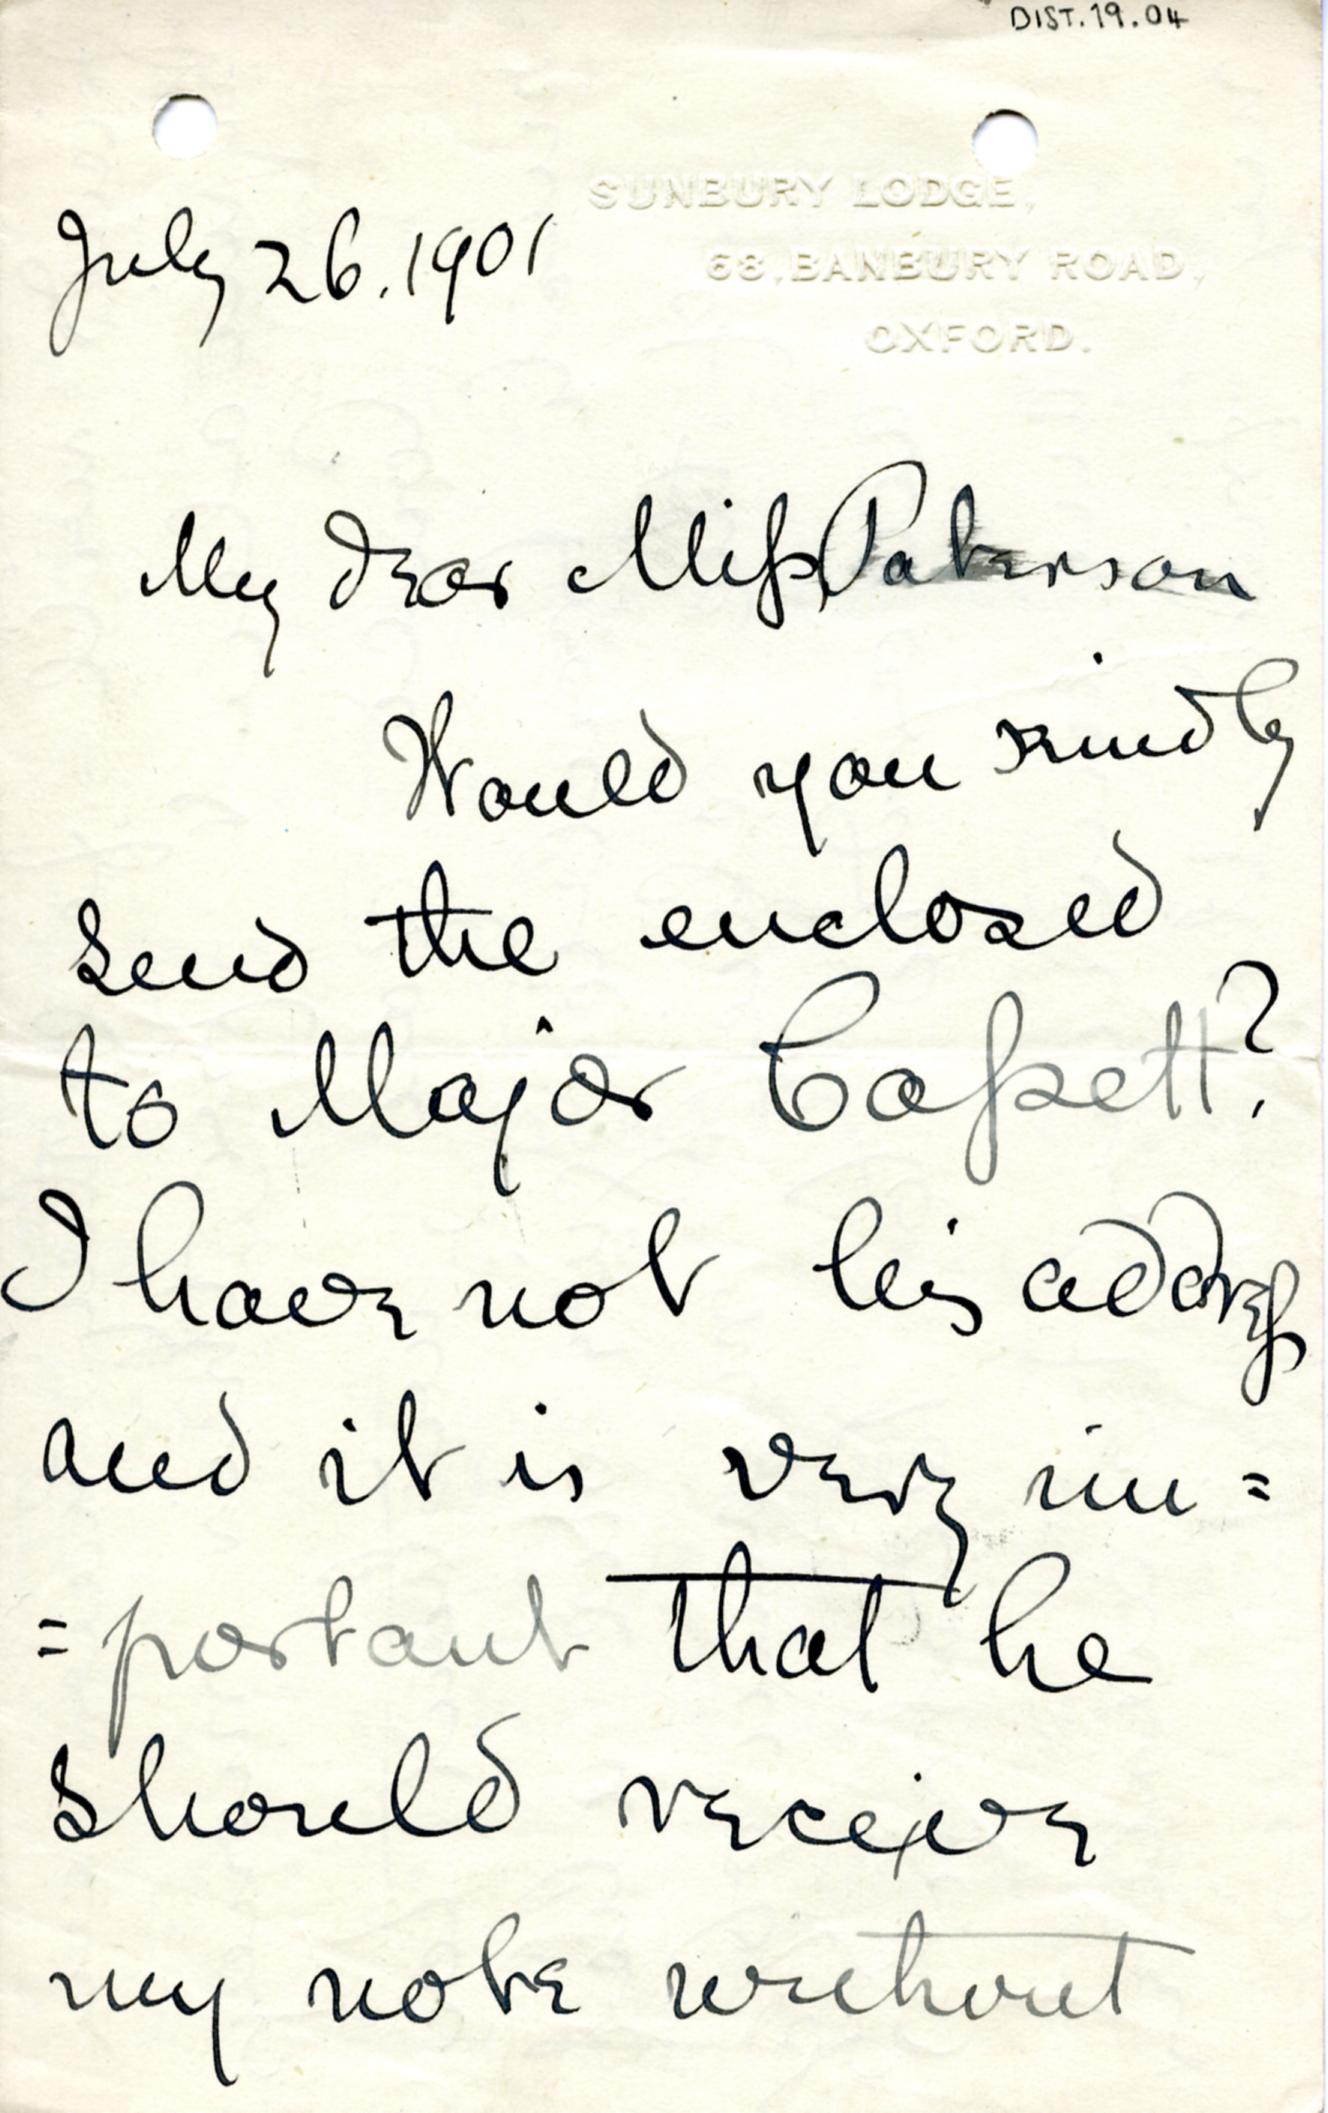 DIST.19.04
SUNBURY LODGE,
68, BANBURY ROAD,
OXFORD.
July 26. 1901
My dear Miſs Paterson
Would you kindly
send the enclosed
to Major Caſsett?
I have not his addreſs
and it is very im=
=portant that he
should receive
my note without